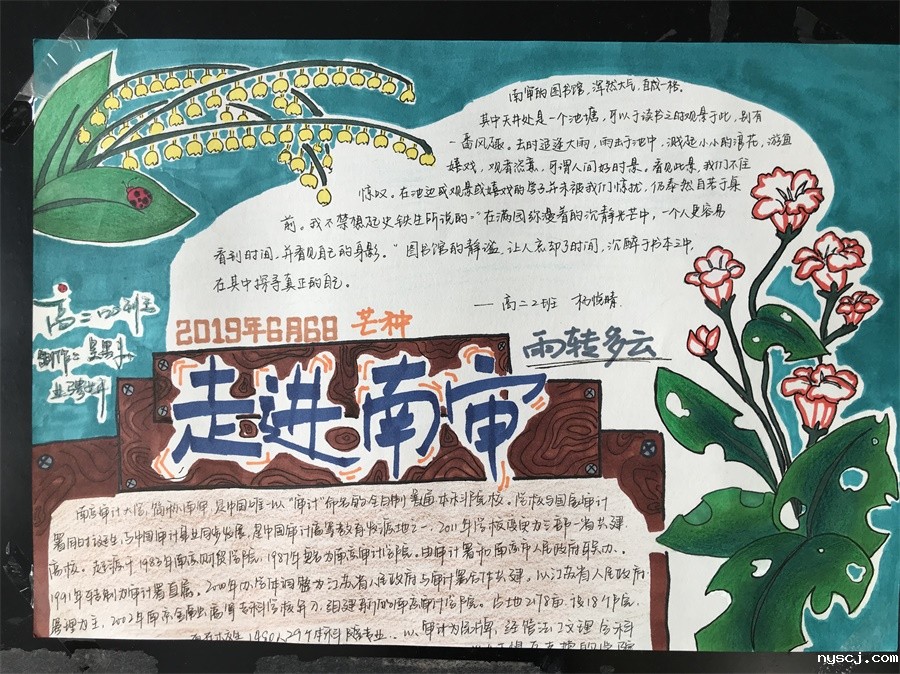 南审的图书馆，浑然大气，自成一格。
其中天井处是一个池塘，可以于读书之时观景于此，别有
一番风趣。去时适逢大雨，雨击于池中，溅起小小的浪花，游鱼
嬉戏，观者恣意，可谓人间好时景。看见此景，我们不住
惊叹。在池边或观景或嬉戏的学子并未被我们惊扰，仍泰然自若于某
前。我不禁想起史铁生所说的："在满园弥漫着的沉静光芒中，一个人更容易
看到时间，并看见自己的身影。"图书馆的静谧，让人忘却了时间，沉醉于书本之中，
在其中探寻真正的自己。
——高二2班 杨悦晴
2019年6月6日 芒种
雨转多云
高二
制作：
走进南审
南京审计大学，简称南审，是中国唯一以"审计"命名的全日制普通本科院校。学校与国家审计
署同时诞生，与中国审计事业同步发展，是中国审计高等教育发源地之一，2011年学校成为三部一省共建
高校。起源于1983年南京财贸学院，1987年更名为南京审计学院。由审计署和南京市人民政府联办。
1991年转制为审计署直属。2000年办学体调整为江苏省人民政府与审计署合作共建，以江苏省人民政府
管理为主，2002年南京金融高等专科学校并入，组建新的南京审计学院。占地2178亩，设18个学院，
29个本科 专业。以审计为品牌，经管法工文理 学科
nyscj.com